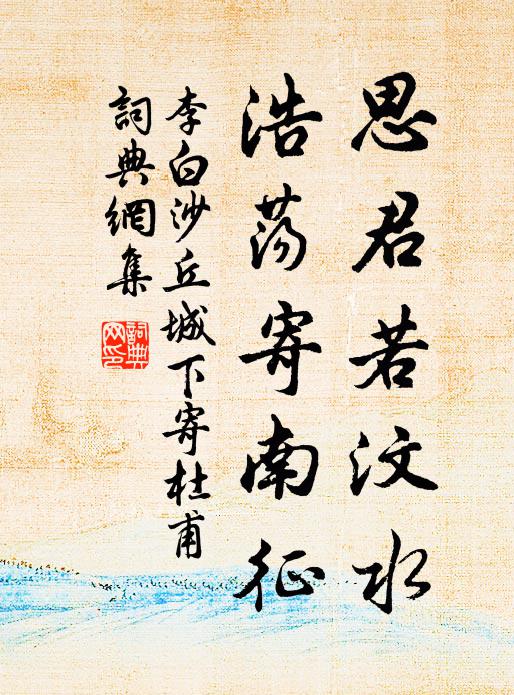 思君若汶水
浩荡寄南征
李白沙丘城下寄杜甫
詞典網集
詞典
网印